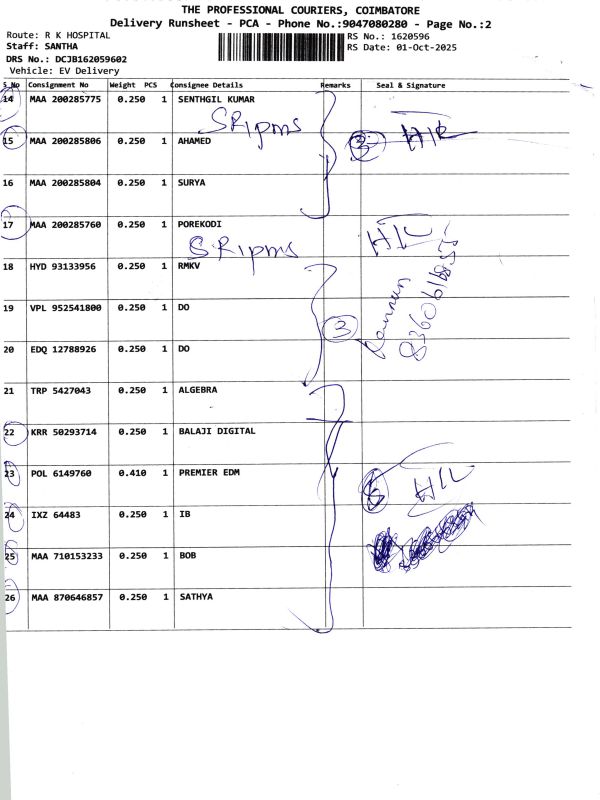 THE PROFESSIONAL COURIERS, COIMBATORE
Delivery Runsheet - PCA - Phone No.:9047080280 - Page No.:2
Route: R K HOSPITAL
Staff: SANTHA
DRS No.: DCJB162059602
Vehicle: EV Delivery
RS No.: 1620596
RS Date: 01-Oct-2025
S No Consignment No Weight PCS Consignee Details Remarks Seal & Signature
14 MAA 200285775 0.250 1 SENTHGIL KUMAR
SRipms
15 MAA 200285806 0.250 1 AHAMED 3
16 MAA 200285804 0.250 1 SURYA
17 MAA 200285760 0.250 1 POREKODI
SRipms
18 HYD 93133956 0.250 1 RMKV
19 VPL 952541800 0.250 1 DO
3
20 EDQ 12788926 0.250 1 DO
21 TRP 5427043 0.250 1 ALGEBRA
22 KRR 50293714 0.250 1 BALAJI DIGITAL
23 POL 6149760 0.410 1 PREMIER EDM 5
24 IXZ 64483 0.250 1 IB
25 MAA 710153233 0.250 1 BOB
26 MAA 870646857 0.250 1 SATHYA